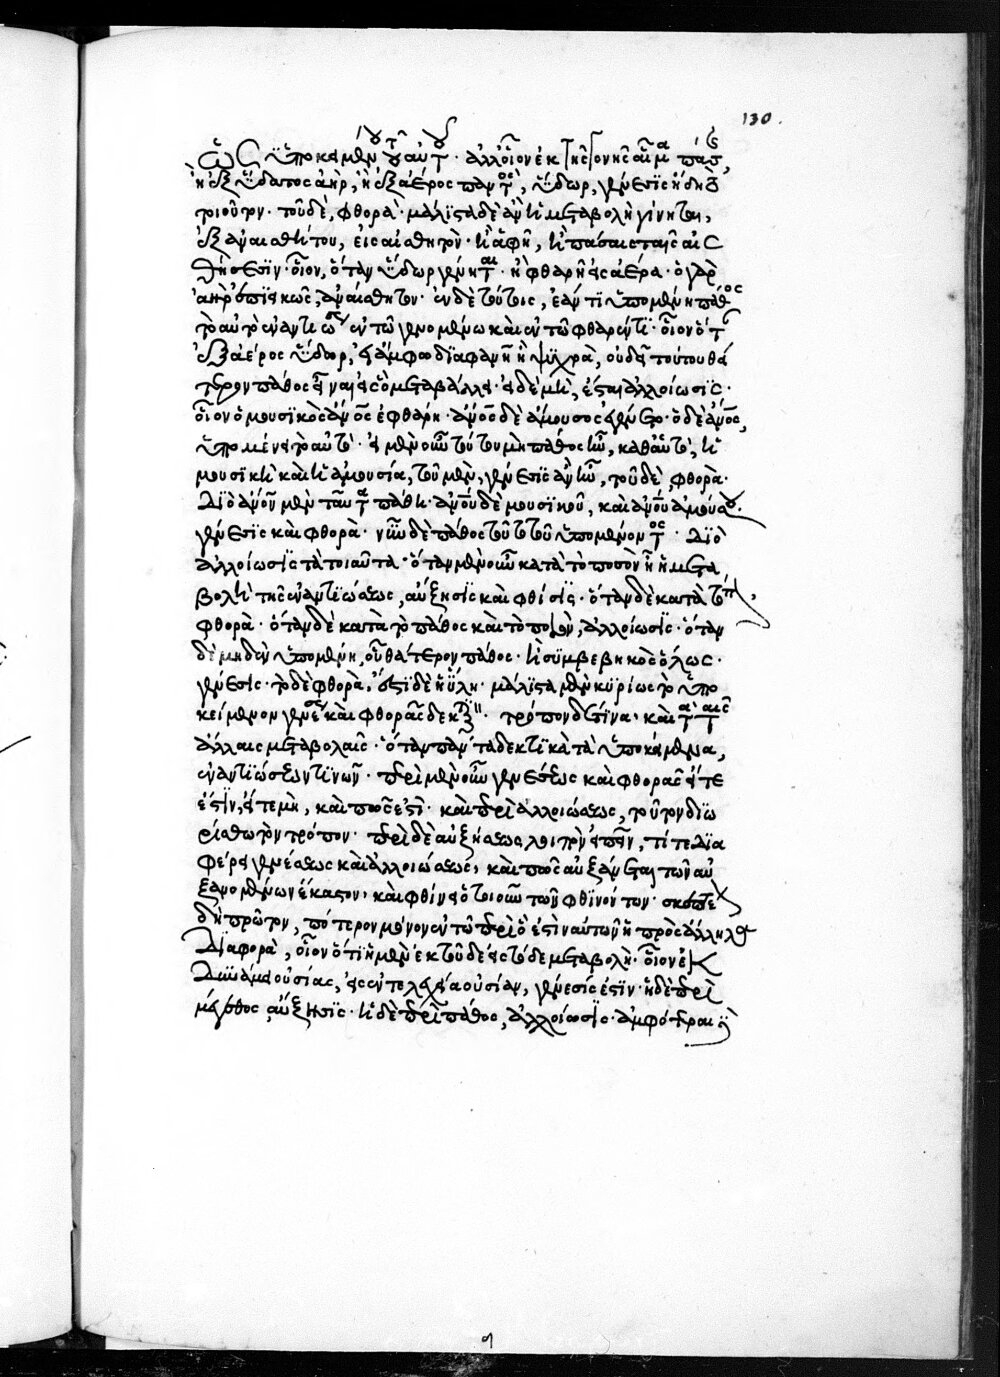 130.
ὡς ὑποκειμένου τοῦ αὐτοῦ· ἀλλ' οἷον ἐκ τῆς γονῆς αἷμα πάσης,
ἢ ἐξ ὕδατος ἀὴρ, ἢ ἐξ ἀέρος παντὸς, ὕδωρ, γένεσις ἤδη τὸ
τοιοῦτον· τοῦ δὲ, φθορά· μάλιστα δὲ ἂν ἡ μεταβολὴ γίνηται,
ἐξ ἀναισθήτου, εἰς αἰσθητὸν· ἢ ἁφῆ, ἢ πάσαις ταῖς αἰσ
θήσεσιν· οἷον, ὅταν ὕδωρ γένηται· ἢ φθαρῆ εἰς ἀέρα· ὁ γὰρ
ἀὴρ ἐπιεικῶς, ἀναίσθητον· ἐν δὲ τούτοις, ἐάν τι ὑπομένη πάθος
τὸ αὐτὸ ἐναντιώσεως ἐν τῶ γενομένω καὶ ἐν τῶ φθαρέντι· οἷον ὅτε
ἐξ ἀέρος ὕδωρ, εἰ ἄμφω διαφανῆ ἢ ψυχρὰ, οὐ δεῖ τούτου θά
τερον πάθος εἶναι εἰς ὃ μεταβάλλει· εἰ δὲ μὴ, ἔσται ἀλλοίωσις·
οἷον ὁ μουσικὸς ἄνος ἐφθάρη· ἄνος δὲ ἄμουσος ἐγένετο· ὁ δὲ ἄνος,
ὑπομένει τὸ αὐτό· εἰ μὲν οὖν τούτου μὴ πάθος ἦν, καθαὑτὸ, ἡ
μουσικὴ καὶ ἡ ἀμουσία, τοῦ μὲν, γένεσις ἂν ἦν, τοῦ δὲ, φθορά·
διὸ ἀνου μὲν ταῦτα πάθη· ἀνου δὲ μουσικοῦ, καὶ ἀνου ἀμούσου·
γένεσις καὶ φθορά· νῦν δὲ πάθος τοῦτο τοῦ ὑπομένοντος· διὸ
ἀλλοίωσις τὰ τοιαῦτα· ὅταν μὲν οὖν κατὰ τὸ ποσὸν ἦ ἡ μετα
βολὴ τῆς ἐναντιώσεως, αὔξησις καὶ φθίσις· ὅταν δὲ κατὰ τόπον,
φθορά· ὅταν δὲ κατὰ τὸ πάθος καὶ τὸ ποιὸν, ἀλλοίωσις· ὅταν
δὲ μηδὲν ὑπομένη, οὗ θάτερον πάθος· ἢ συμβεβηκὸς ὅλως·
γένεσις· τὸ δὲ φθορά, ἔστι δὲ ἡ ὕλη· μάλιστα μὲν κυρίως τὸ ὑπο
κείμενον γενέσεως καὶ φθορᾶς δεκτικόν· τρόπον δέ τινα· καὶ τὸ ταῖς
ἄλλαις μεταβολαῖς· ὅτι πάντα δεκτικὰ τὰ ὑποκείμενα,
ἐναντιώσεών τινων· περὶ μὲν οὖν γενέσεως καὶ φθορᾶς εἴτε
ἔστιν, εἴτε μὴ, καὶ πῶς ἐστὶ· καὶ περὶ ἀλλοιώσεως, τοῦτον διω
ρίσθω τὸν τρόπον· περὶ δὲ αὐξήσεως λοιπὸν εἰπεῖν, τί τε δια
φέρει γενέσεως καὶ ἀλλοιώσεως, καὶ πῶς αὐξάνεται τῶν αὐ
ξανομένων ἕκαστον, καὶ φθίνει ὁτιοῦν τῶν φθινόντων· σκεπτέον
δὴ πρῶτον, πότερον μόνον ἐν τῶ περὶ ὅ ἐστὶν αὐτῶν ἡ πρὸς ἄλληλα
διαφορὰ, οἷον ὅτι ἡ μὲν ἐκ τοῦδε εἰς τόδε μεταβολὴ· οἷον ἐκ
δυνάμει οὐσίας, εἰς ἐντελεχεία οὐσίαν, γένεσίς ἐστιν· ἡ δὲ περὶ
μέγεθος, αὔξησις· ἡ δὲ περὶ πάθος, ἀλλοίωσις· ἀμφότεραι δὲ